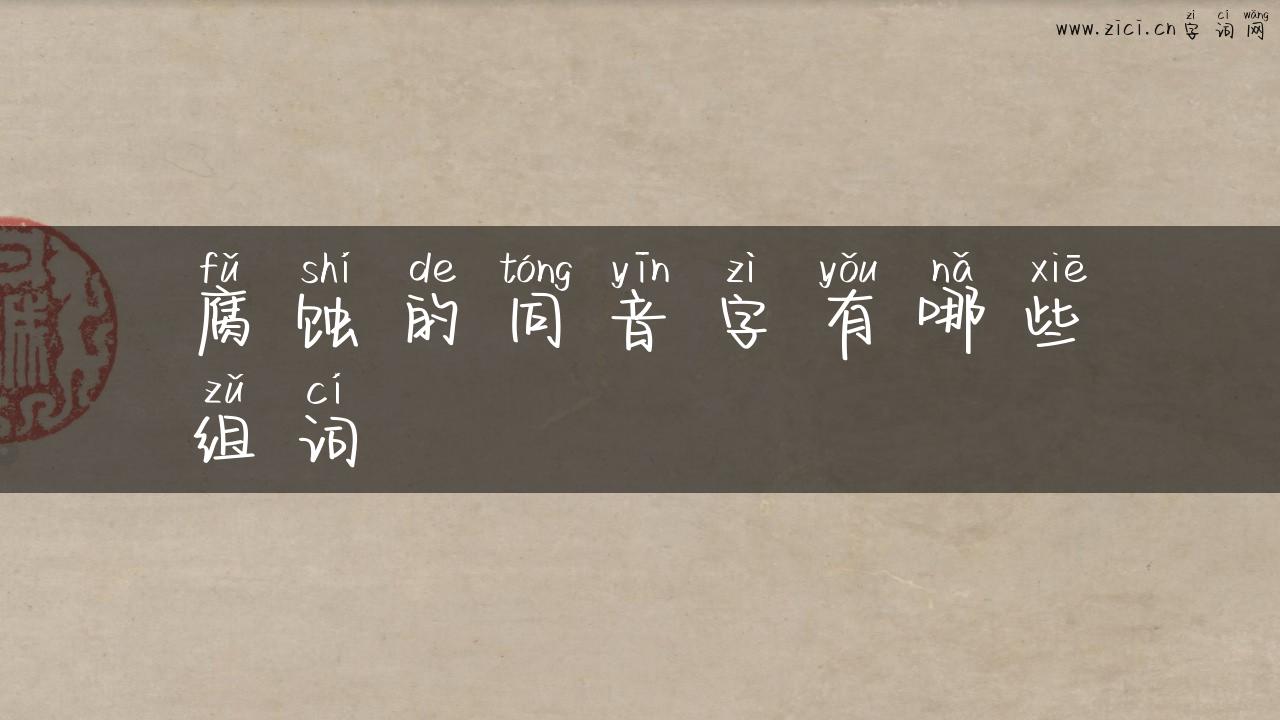 zì cí wǎng
www.zici.cn 字词网
fǔ shí de tóng yīn zì yǒu nǎ xiē
腐蚀的同音字有哪些
zǔ cí
组词